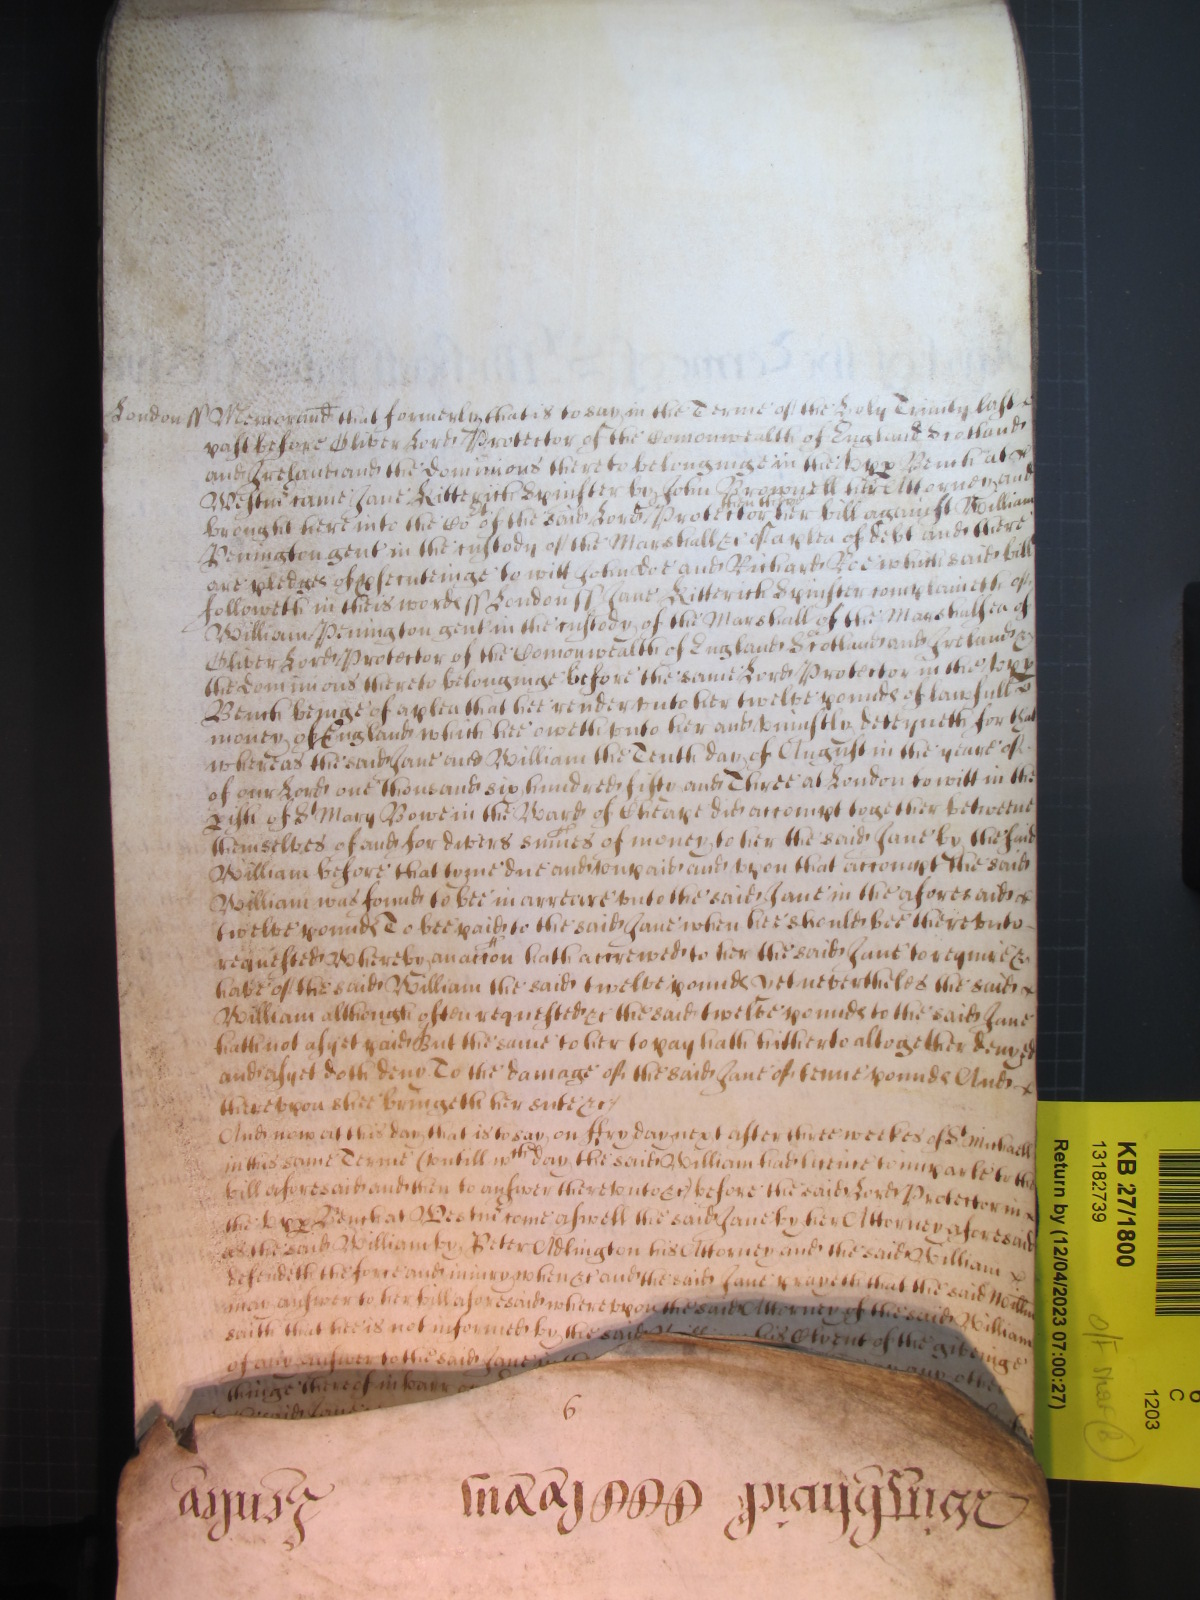 London ss Memorand that formerly that is to say in the Terme of the Holy Trinity last
past before Oliver Lord Protector of the Comonwealth of England Scotland
and Ireland and the dominions thereto belonginge in the upp Bench at
Westm came Jane Kitterich Spinster by John Brownell her Attorney and
brought here into the Cot of the said Lord Protector then there her bill against William
Penington gent in the custody of the Marshall &c of a plea of debt and there
are pledges of psecuteinge to witt John Doe and Richard Roe which said bill
followeth in theis words ss London ss Jane Kitterich Spinster complaineth of
William Penington gent in the custody of the Marshall of the Marshalsea of
Oliver Lord Protector of the Comonwealth of England Scotland and Ireland &
the dominions thereto belonginge before the same Lord Protector in the upp
Bench beinge of a plea that hee render unto her twelve pounds of lawfull
money of England which hee oweth unto her and uniustly deteyneth for that
whereas the said Jane and William the Tenth day of August in the yeare of
of our Lord one thousand six hundred fifty and Three at London to witt in the
pish of St Mary Bowe in the Ward of Cheape did accompt together betweene
themselves of and for divers sumes of money to her the said Jane by the said
William before that tyme due and unpaid and upon that accompt the said
William was found to bee in arreare unto the said Jane in the aforesaid
twelve pounds To bee paid to the said Jane when hee should bee thereunto
requested Whereby an accion hath accrewed to her the said Jane to require &
have of the said William the said twelve pounds yet nevertheles the said
William although often requested &c the said twelve pounds to the said Jane
hath not as yet paid But the same to her to pay hath hitherto altogether denyed
and as yet doth deny To the damage of the said Jane of tenne pounds And
thereupon shee bringeth her suite &c
And now at this day that is to say on ffryday next after three weekes of St Michaell
in this same Terme (untill wch day the said William had licence to imparle to the
bill aforesaid and then to answer thereunto &c) before the said Lord Protector in
the upp Bench at Westm come aswell the said Jane by her Attorney aforesaid
as the said William by Peter Aldington his Attorney and the said William
defendeth the force and iniury when &c and the said Jane prayeth that the said Willm
may answer to her bill aforesaid whereupon the said Attorney of the said William
saith that hee is not informed by the said his Clyent of the giveinge
of any answer to the said Jane any other
thinge thereof in barr or
said Jane
6
KB 27/1800
13182739
Return by (12/04/2023 07:00:27)
6
C
1203